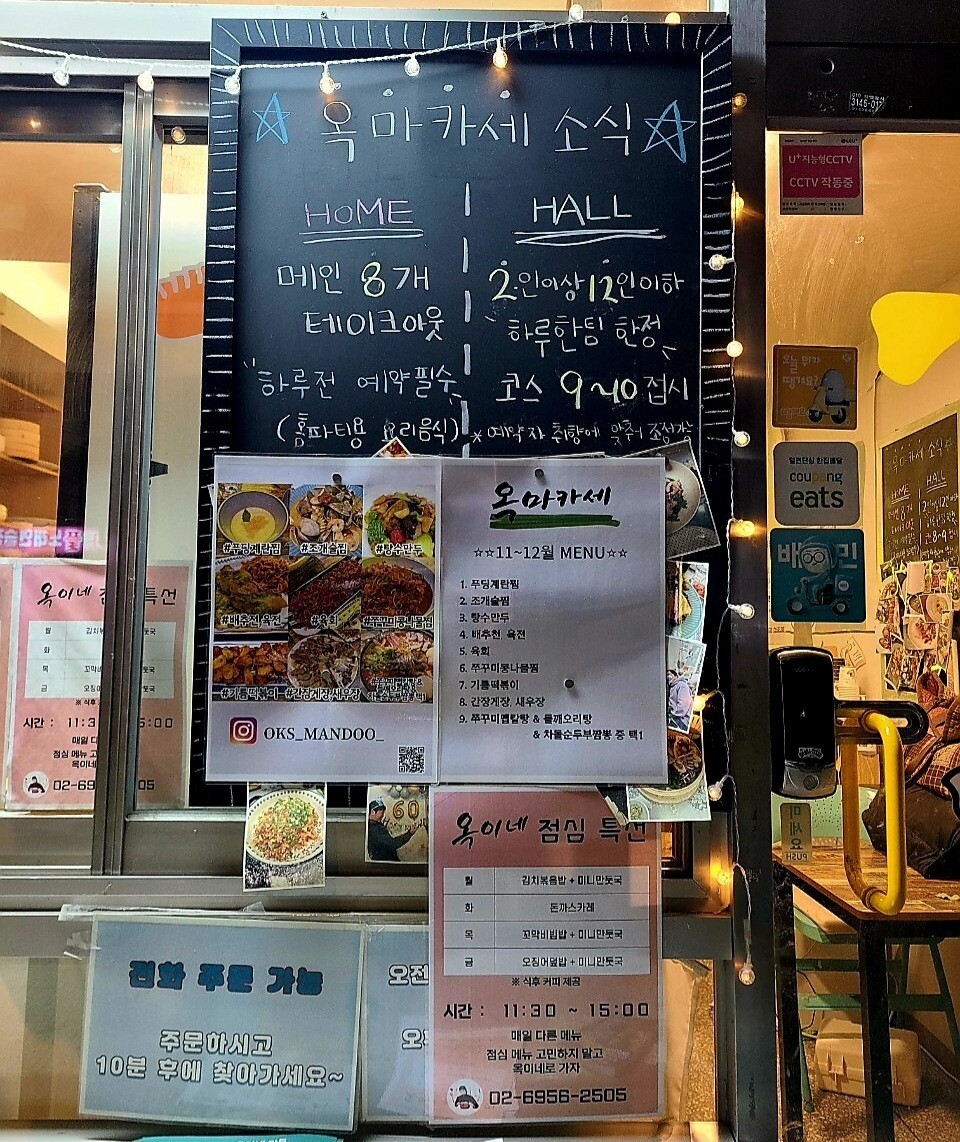 옥마카세 소식
HOME
메인 8개
테이크아웃
"하루전 예약필수"
(홈파티용 요리음식)
HALL
2인이상 12인이하
"하루한팀 한정"
코스 9~10접시
*예약자 취향에 맞추어 조정가
#푸딩계란찜
#조개술찜
#탕수만두
#배추전,육전
#육회
#쭈꾸미콩나물찜
#기름떡볶이
#간장게장,새우장
OKS_MANDOO_
옥마카세
☆☆11~12월 MENU☆☆
1. 푸딩계란찜
2. 조개술찜
3. 탕수만두
4. 배추전, 육전
5. 육회
6. 쭈꾸미콩나물찜
7. 기름떡볶이
8. 간장게장, 새우장
9. 쭈꾸미짭칼탕 & 들깨오리탕
& 차돌순두부짬뽕 중 택1
옥이네 점심 특선
월 김치볶음밥 + 미니만둣국
화 돈까스카레
목 꼬막비빔밥 + 미니만둣국
금 오징어덮밥 + 미니만둣국
※ 식후 커피 제공
시간 : 11:30 ~ 15:00
매일 다른 메뉴
점심 메뉴 고민하지 말고
옥이네로 가자
02-6956-2505
전화 주문 가능
주문하시고
10분 후에 찾아가세요~
오전
오
옥이네 점심 특선
월 김치볶 둣국
화
목 꼬막비 둣국
금 오징어 둣국
※ 식후
시간 : 11:3 5:00
매일 다
점심 메뉴 고
옥이네로
02-69 05
3146-017
U+지능형CCTV
CCTV 작동중
오늘 뭐가
땡겨요?
coupang
eats
배민
HOME
HALL
미세요
PUSH